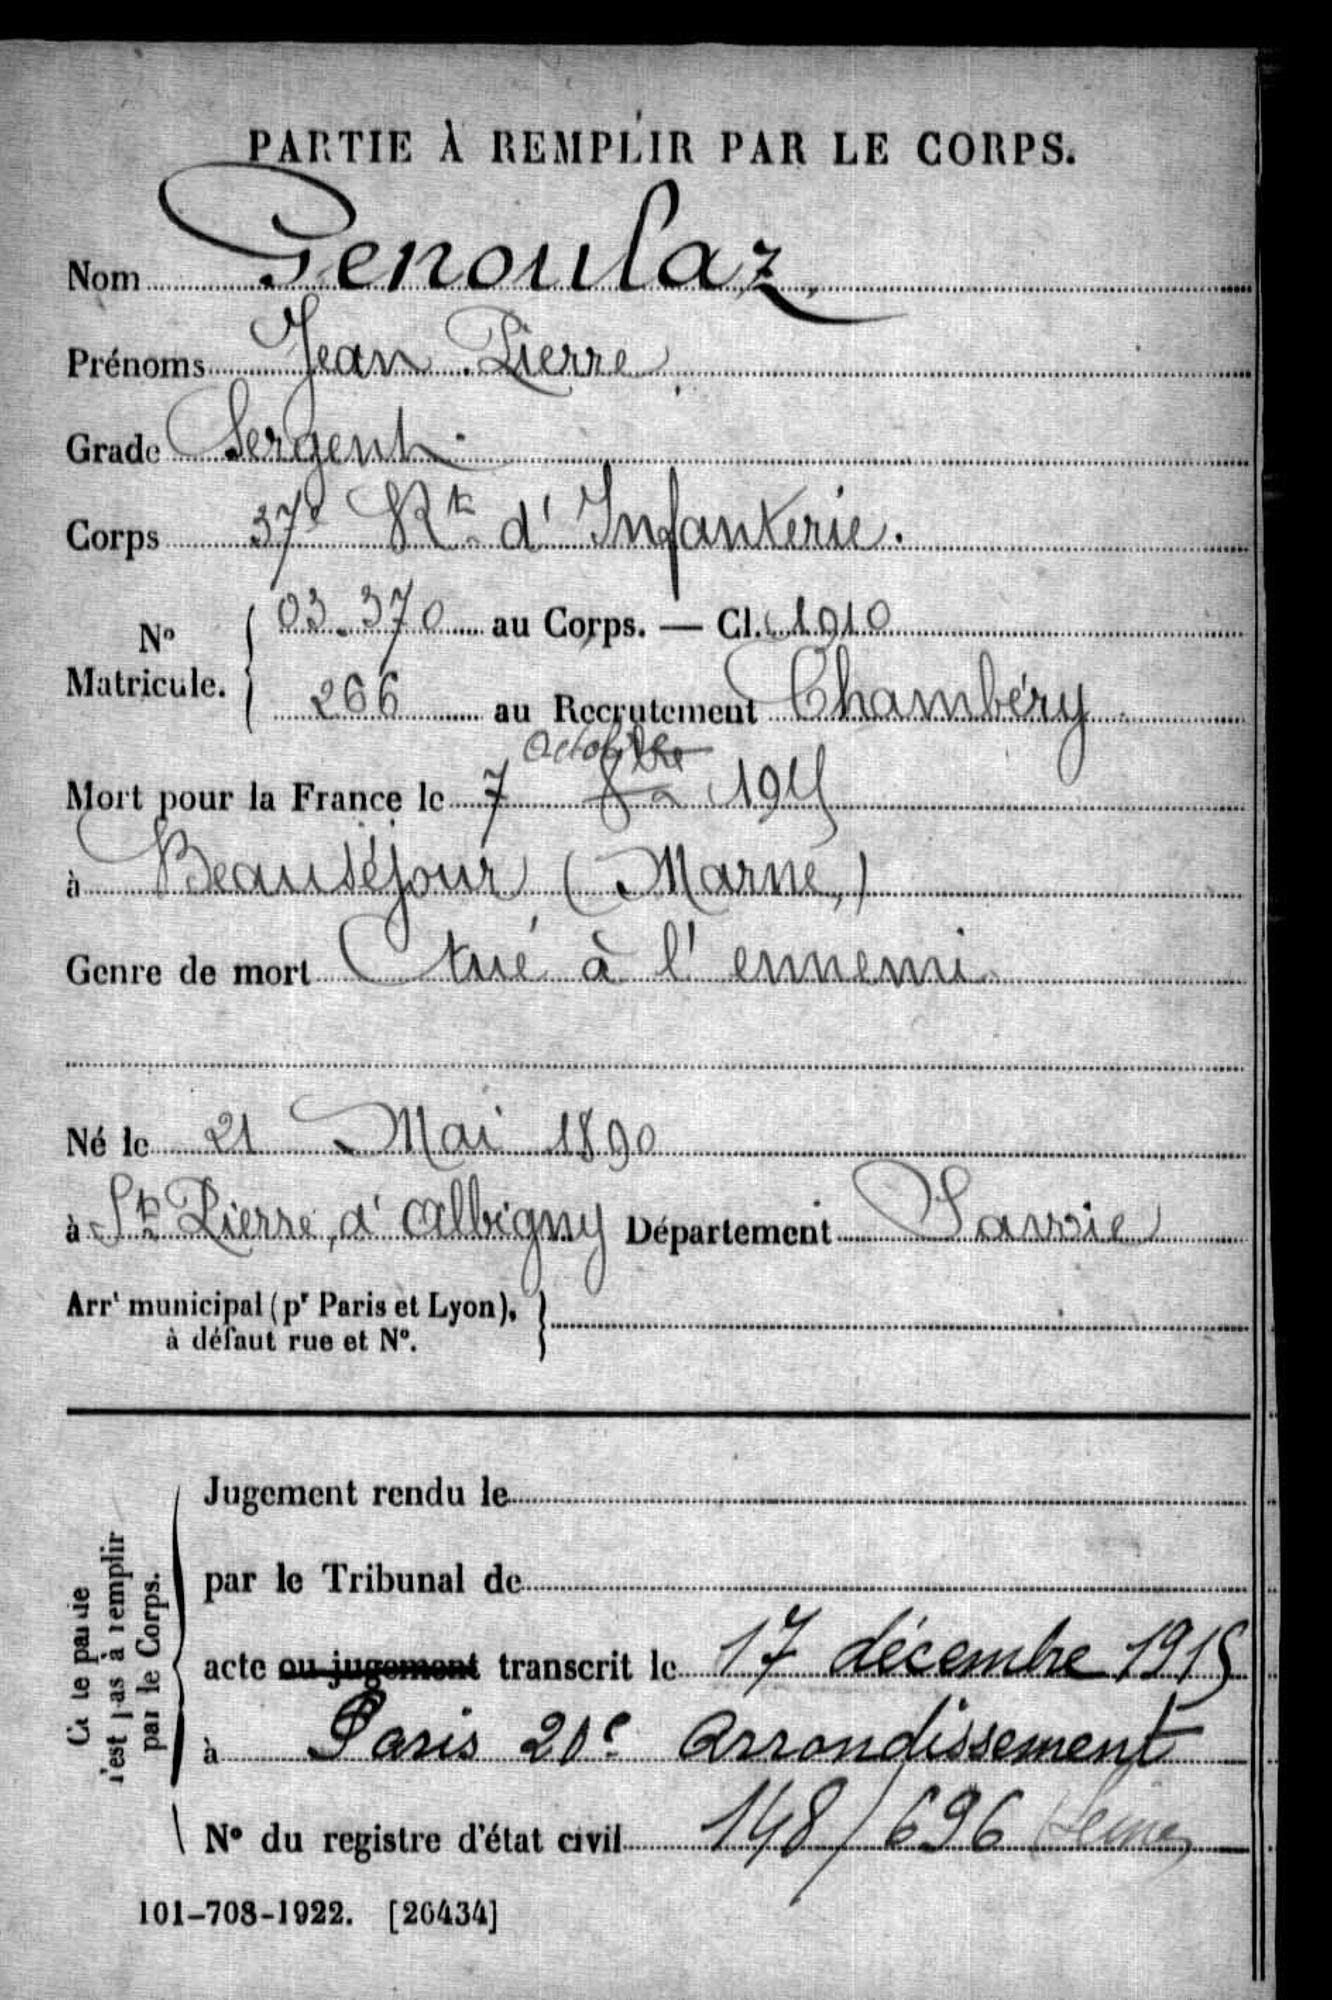 PARTIE À REMPLIR PAR LE CORPS.
Nom Genoulaz
Prénoms Jean Pierre
Grade Sergent
Corps 37e Rt d'Infanterie.
No Matricule. 03.370 au Corps. — Cl. 1910
266 au Recrutement Chambéry
octobre
Mort pour la France le 7 1915
à Beauséjour (Marne)
Genre de mort tué à l'ennemi
Né le 21 Mai 1890
à St Pierre d'Albigny Département Savoie
Arrt municipal (pr Paris et Lyon), à défaut rue et No.
Jugement rendu le
par le Tribunal de
acte ou jugement transcrit le 17 décembre 1915
à Paris 20e Arrondissement
No du registre d'état civil 148/696 (Seine)
Cette partie n'est pas à remplir par le Corps.
101-708-1922. [26434]